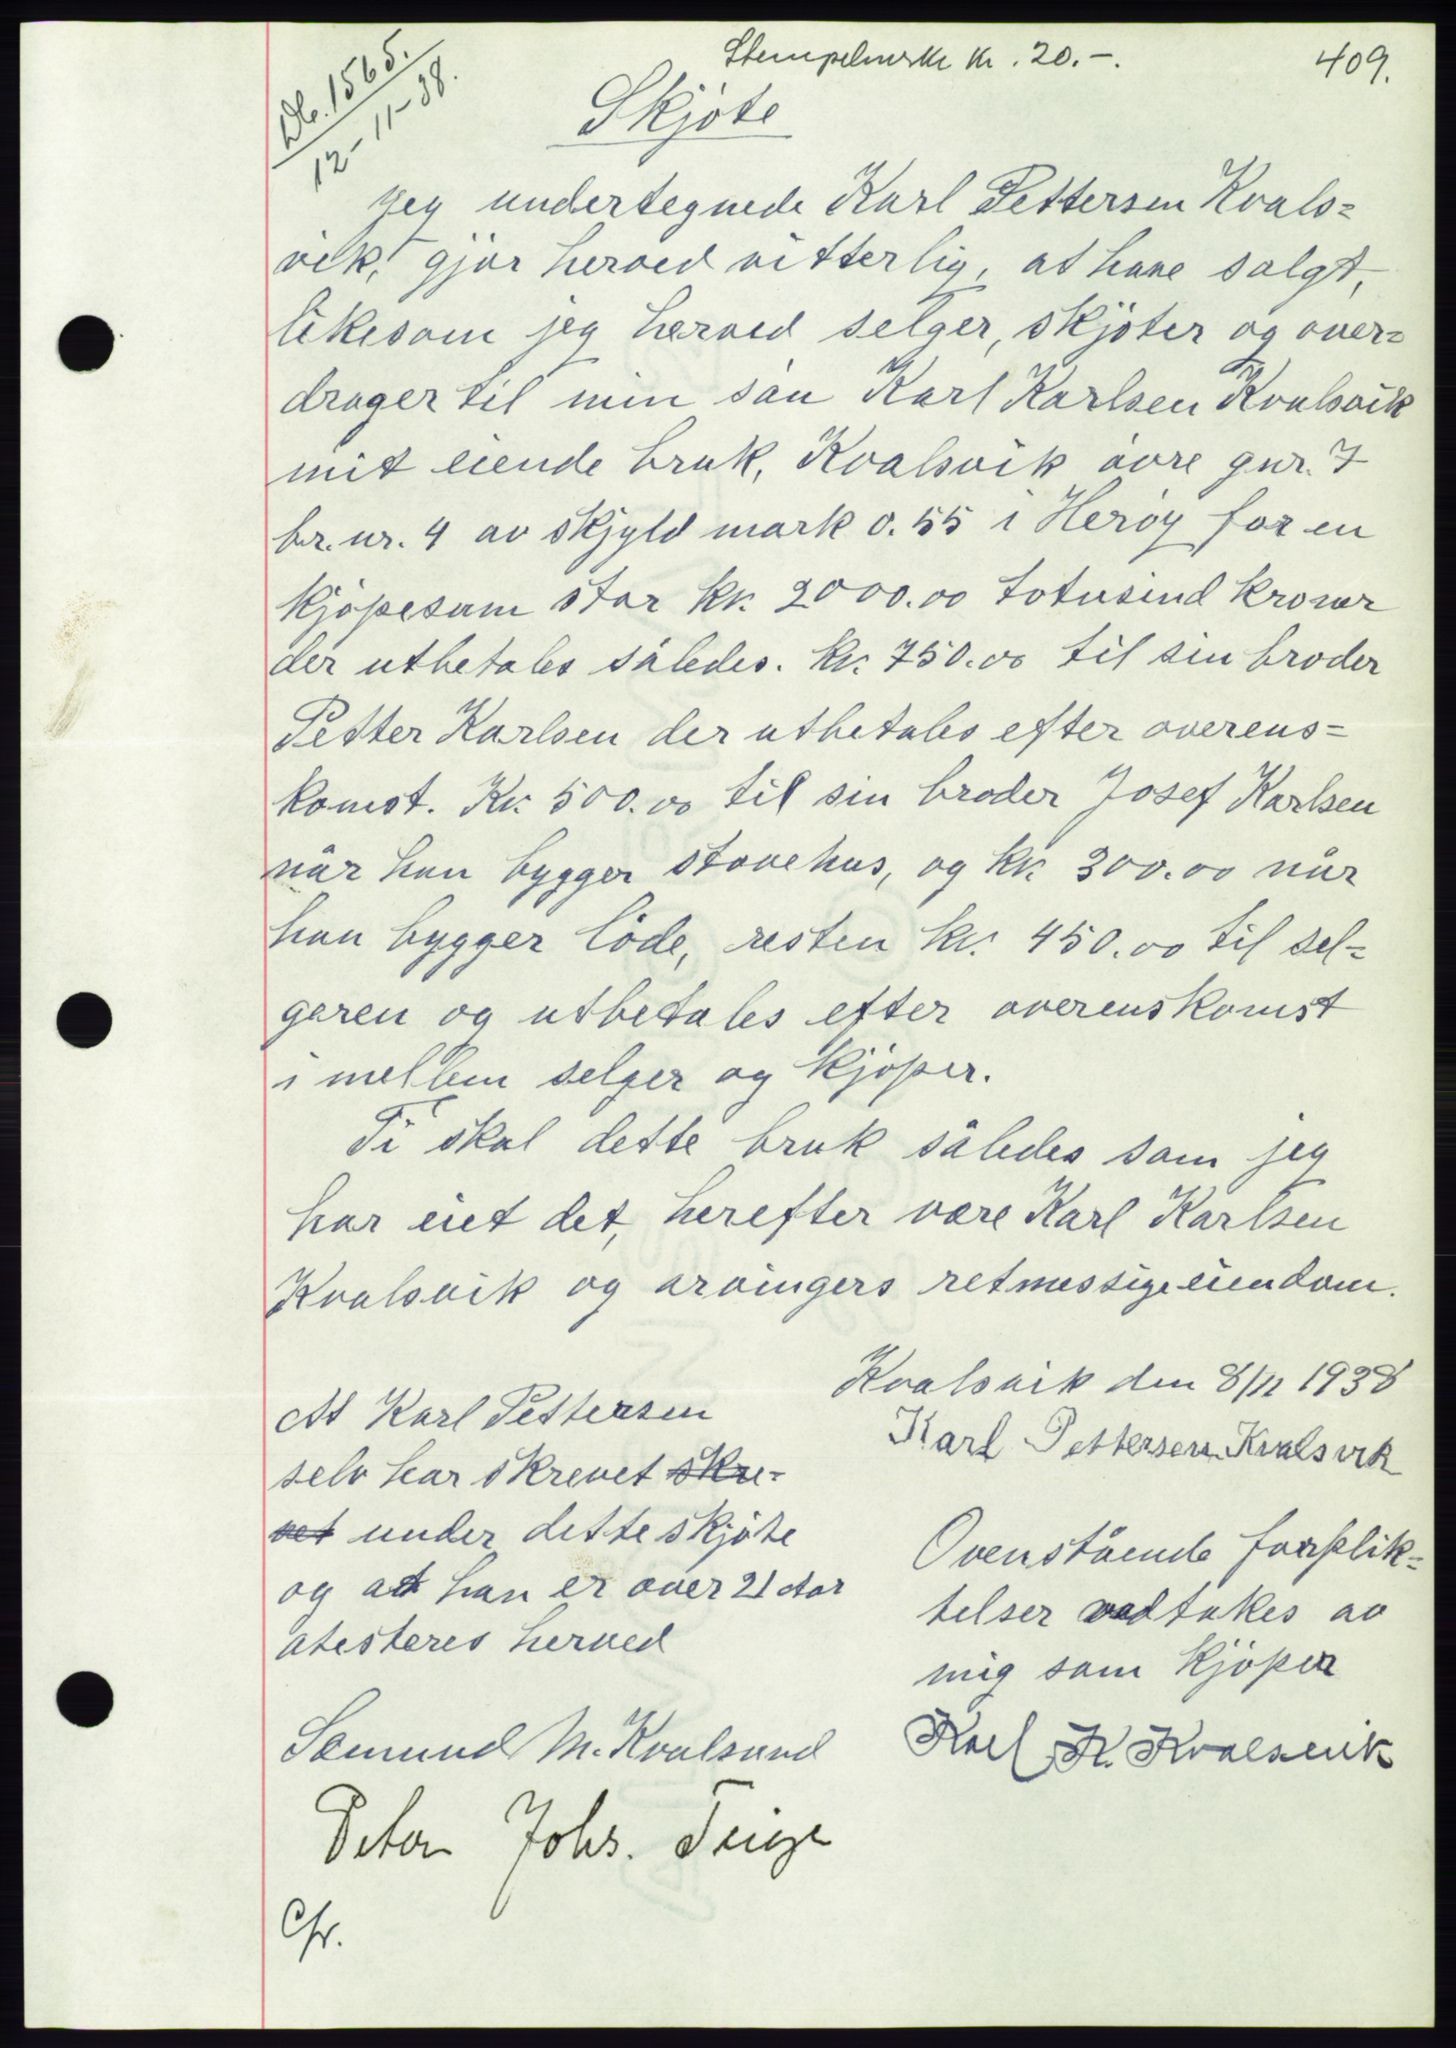 Stempelmerke kr. 20.-.
409.
Db. 1565.
12-11-38.
Skjøte
Jeg undertegnede Karl Pettersen Kvals=
vik, gjør herved vitterlig, at have solgt,
likesom jeg herved selger, skjøter og over=
drager til min søn Karl Karlsen Kvalsvik
mit eiende bruk, Kvalsvik øvre gnr. 7
br. nr. 4 av skjyld mark 0.55 i Herøy for en
kjøpesum stor kr. 2000.00 totusind kroner
der utbetales således. kr. 750.00 til sin broder
Petter Karlsen der utbetales efter overens=
komst. Kr. 500.00 til sin broder Josef Karlsen
når han bygger stovehus, og kr. 300.00 når
han bygger løde, resten kr. 450.00 til sel=
geren og utbetales efter overenskomst
i mellem selger og kjøper.
Ti skal dette bruk således som jeg
har eiet det, herefter være Karl Karlsen
Kvalsvik og arvingers retmessige eiendom.
Kvalsvik den 8/11 1938
Karl Pettersen Kvalsvik
At Karl Pettersen
selv har skrevet skre-
vet under dette skjøte
og at han er over 21 Aar
atesteres herved
Sæmund M. Kvalsund
Peter Johs. Teige
Ovenstående forplik=
telser vedtakes av
mig som kjøper
Karl K. Kvalsvik